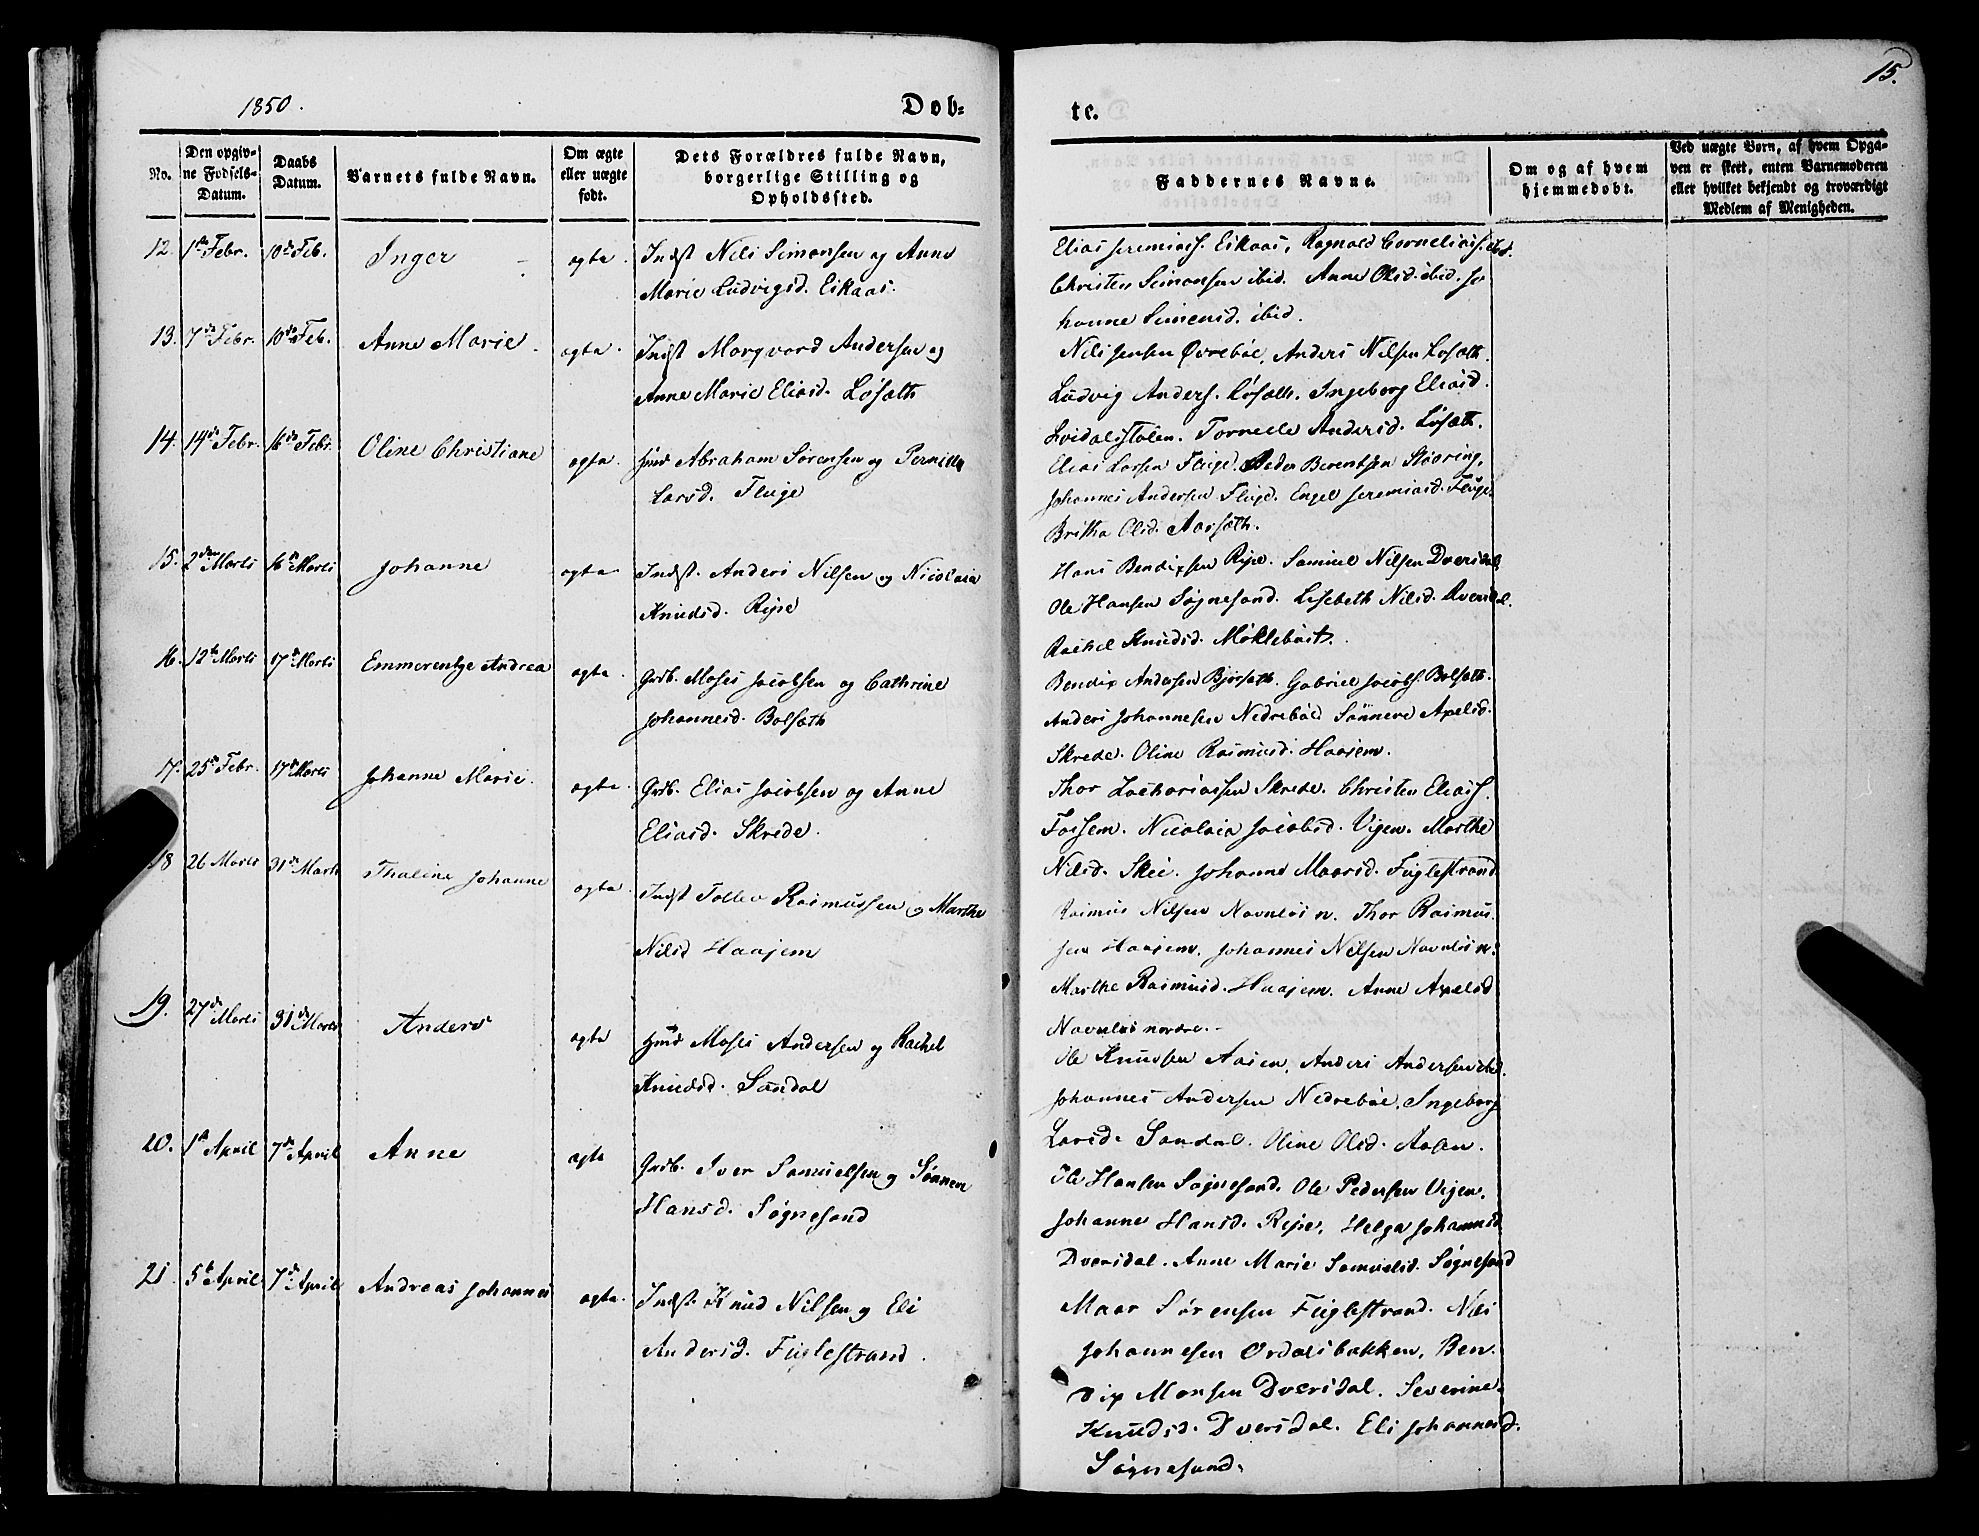 1850.
Døb=
te.
15.
No.
Den opgiv-
ne Fødsels-
Datum.
Daabs
Datum.
Barnets fulde Navn.
Om ægte
eller uægte
født.
Dets Forældres fulde Navn,
borgerlige Stilling og
Opholdssted.
Faddernes Navne.
Om og af hvem
hjemmedøbt.
Ved uægte Børn, af hvem Opga-
ven er skeet, enten Barnemoderen
eller hvilket bekjendt og troværdigt
Medlem af Menigheden.
12. 1ste Febr. 10de Feb. Inger ægte. Indst Nils Simonsen og Anne
Marie Ludvigsd. Eikaas.
Elias Jeremiass. Eikaas, Ragnald Corneliuss. ibd.
Christen Simonsen ibid. Anne Olsd. ibid. Jo-
hanne Simensd. ibid.
13. 7de Febr. 10de Feb. Anne Marie ægte. Indst Marqvard Andersen og
Anne Marie Eliasd. Løsæth
Nils Jensen Øvrebøe, Anders Nilsen Løsæth.
Ludvig Anders. Løsæth. Ingeborg Eliasd.
Tornelle Andersd. Løsæth.
14. 14de Febr. 16de Febr. Oline Christiane ægte. Hmd Abraham Sørensen og Pernille
Larsd. Fluge
Elias Larsen Fluge. Peder Berentsen Støoring.
Johannes Andersen Flugd. Engel Jeremiasd. Fluge.
Britha Olsd. Aarsæth.
15. 2den Marts 16de Marts Johanne ægte Indst. Anders Nilsen og Nicolaia
Knudsd. Reise
Hans Bendixsen Reise. Samuel Nilsen Dversdal
Ole Hansen Søgnesand. Lisebeth Nilsd. Dversdal.
Rachel Knudsd. Møklebust.
16. 12te Marts 17de Marts Emmerentze Andrea ægte. Grdb. Moses Jacobsen og Cathrine
Johannesd. Bolsæth
Bendix Andersen Bjørsæth. Gabriel Jacobs. Bolsæth.
Anders Johannesen Nedrebøe Sønneve Axelsd.
Skrede. Oline Rasmusd. Haajem.
17. 25de Febr. 17de Marts Johanne Marie. ægte. Grdb. Elias Jacobsen og Anne
Eliasd. Skrede.
Thor Zachariassen Skrede. Christen Eliass.
Fossem. Nicolaia Jacobsd. Vigen. Marthe
Nilsd. Skei. Johanne Maarsd. Fuglestrand
18 26 Marts 31de Marts Thaline Johanne ægte. Indst Tollev Rasmussen og Marthe
Nilsd Haajem
Rasmus Nilsen Navnløs n. Thor Rasmus-
sen Haajem. Johannes Nilsen Navnløs n.
Marthe Rasmusd. Haajem. Anne Axelsd
Navnløs nordre.
19. 27de Marts 31de Marts Anders ægte Hmd Moses Andersen og Rachel
Knudsd. Sandal
Ole Knudsen Aasen, Anders Andersen ibd.
Johannes Andersen Nedrebøe, Ingeborg
Larsd. Sandal. Oline Olsd. Aasen.
20. 1ste April 7de April Anne ægte Grdb. Iver Samuelsen og Sønnem
Hansd. Søgnesand
Ole Hansen Søgnesand. Ole Pedersen Vigen.
Johanne Hansd. Reise, Helga Johannesd
Dversdal. Anne Marie Samuelsd. Søgnesand
21. 5te April 7de April Andreas Johannes ægte. Indst. Knud Nilsen og Eli
Andersd. Fuglestrand.
Maar Sørensen Fuglestrand. Nils
Johannesen Ordalsbakken, Ben-
dix Monsen Dversdal. Severine
Knudsd. Dversdal. Eli Johannesd.
Søgnesand.